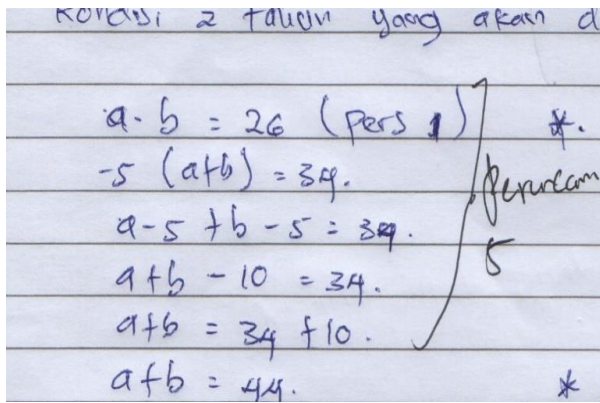 Kondisi 2 tahun yang akan d
a - b = 26 (pers 1) *.
-5 (a+b) = 34.
a-5 + b - 5 = 34.
a+b - 10 = 34.
5
a+b = 34 + 10.
a+b = 44. *